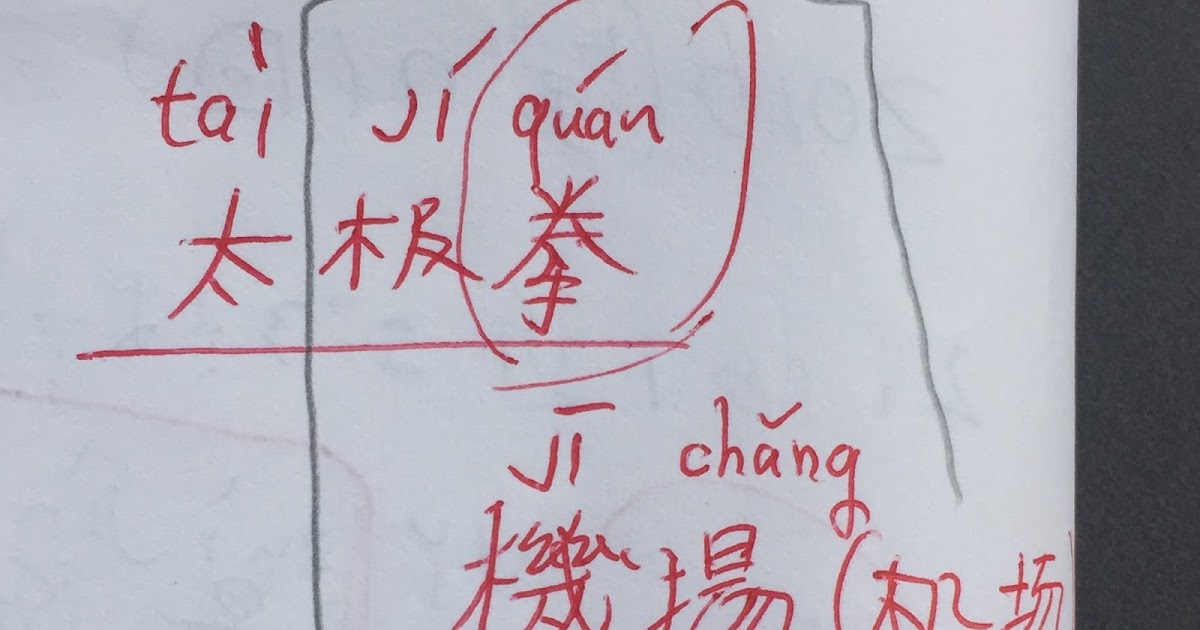 tài jí quán
太极拳
jī chǎng
機場 (机场